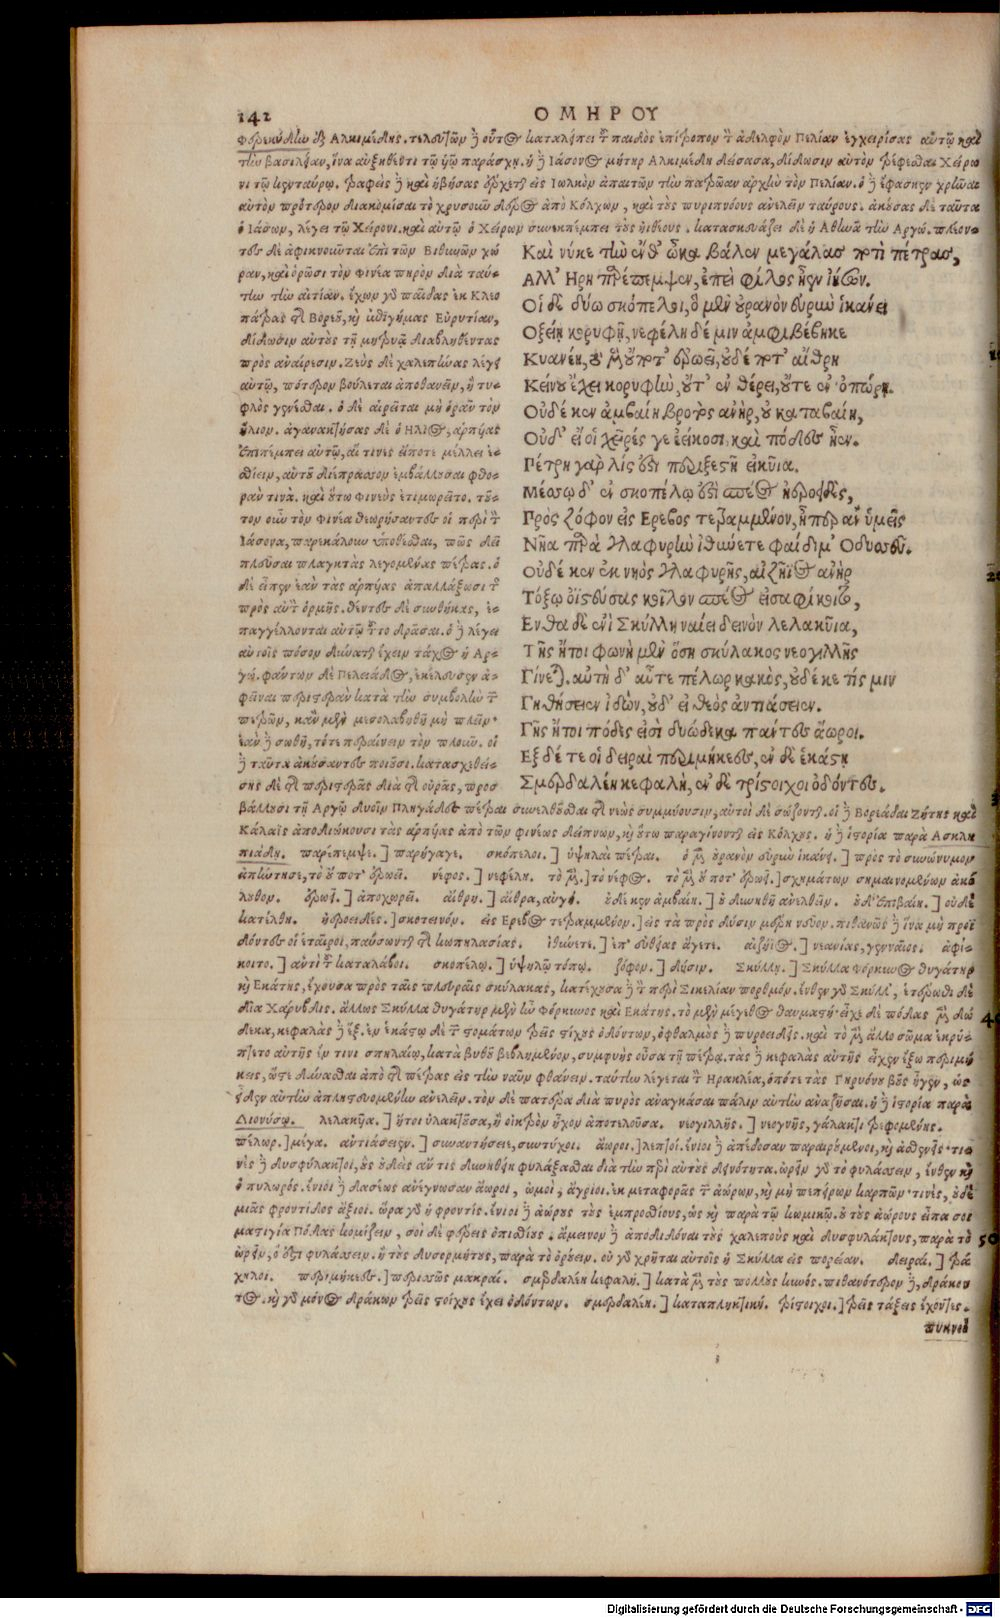 142 ΟΜΗΡΟΥ
Φερεκύδην ἐξ Ἀλκιμέδης. τελευτῶν δὲ οὗτος καταλείπει τοῦ παιδὸς ἐπίτροπον τὸν ἀδελφὸν Πελίαν ἐγχειρίσας αὐτῷ καὶ
τὴν βασιλείαν, ἵνα αὐξηθέντι τῷ υἱῷ παράσχῃ. ἡ δὲ Ἰάσονος μήτηρ Ἀλκιμέδη δείσασα, δίδωσιν αὐτὸν τρέφεσθαι Χείρω
νι τῷ κενταύρῳ. τραφεὶς δὲ καὶ ἡβήσας ἔρχεται εἰς Ἰωλκὸν ἀπαιτῶν τὴν πατρῴαν ἀρχὴν τὸν Πελίαν. ὁ δὲ ἔφασκεν χρῆναι
αὐτὸν πρότερον διακομίσαι τὸ χρυσοῦν δέρος ἀπὸ Κόλχων, καὶ τοὺς πυριπνόους ἀνελεῖν ταύρους. ἀκούσας δὲ ταῦτα
ὁ Ἰάσων, λέγει τῷ Χείρωνι. καὶ αὐτῷ ὁ Χείρων συνεκπέμπει τοὺς ἠϊθέους. κατασκευάζει δὲ ἡ Ἀθηνᾶ τὴν Ἀργώ. πλέον-
τες δὲ ἀφικνοῦνται ἐπὶ τῶν Βιθυνῶν χώ
ραν, καὶ ὁρῶσι τὸν Φινέα πηρὸν διὰ ταύ-
την τὴν αἰτίαν. ἔχων γὰρ παῖδας ἐκ Κλεο
πάτρας τῆς Βορέου, καὶ ἐπιγήμας Εὐρυτίαν,
δίδωσιν αὐτοὺς τῇ μητρυιᾷ διαβληθέντας
πρὸς ἀναίρεσιν. Ζεὺς δὲ χαλεπήνας λέγει
αὐτῷ, πότερον βούλεται ἀποθανεῖν, ἢ τυ-
φλὸς γενέσθαι. ὁ δὲ αἱρεῖται μὴ ὁρᾶν τὸν
ἥλιον. ἀγανακτήσας δὲ ὁ Ἥλιος, ἁρπύας
ἐπιπέμπει αὐτῷ, αἵ τινες εἴποτε μέλλει ἐ-
σθίειν, αὐτοῦ διέπρασσον ἐμβάλλουσαι φθο-
ράν τινα. καὶ οὕτω Φινεὺς ἐτιμωρεῖτο. τοῦ-
τον οὖν τὸν Φινέα θεωρήσαντες οἱ περὶ τὸν
Ἰάσονα, παρεκάλουν ὑποθέσθαι, πῶς δεῖ
πλεῦσαι πλαγκτὰς λεγομένας πέτρας. ὁ
δὲ εἶπεν ἐὰν τὰς ἁρπύας ἀπαλλάξωσι τῆς
πρὸς αὐτὸν ὁρμῆς. θέντες δὲ συνθήκας, ἐ-
παγγέλλονται αὐτῷ τοῦτο δρᾶσαι. ὁ δὲ λέγει
αὐτοῖς πόσον δύναται ἔχειν τάχος ἡ Ἀρ-
γώ. φάντων δὲ Πελειάδος, ἐκέλευσεν ἀ-
φεῖναι περιστερὰν κατὰ τὴν συμβολὴν τῶν
πετρῶν, κἂν μὲν μεσολαβηθῇ μὴ πλεῖν·
ἐὰν δὲ σωθῇ, τότε περαίνειν τὸν πλοῦν. οἱ
δὲ ταῦτα ἀκούσαντες ποιοῦσι. κατασχεθεί-
σης δὲ τῆς περιστερᾶς διὰ τῆς οὐρᾶς, προσ
Καὶ νύ κε τὴν ἔνθ' ὦκα βάλον μεγάλας ποτὶ πέτρας,
Ἀλλ' Ἥρη παρέπεμψεν, ἐπεὶ φίλος ἦεν Ἰήσων.
Οἱ δὲ δύω σκόπελοι, ὁ μὲν οὐρανὸν εὐρὺν ἱκάνει
Ὀξείῃ κορυφῇ, νεφέλη δέ μιν ἀμφιβέβηκε
Κυανέη, τὸ μὲν οὔποτ' ἐρωεῖ, οὐδέ ποτ' αἴθρη
Κείνου ἔχει κορυφὴν, οὔτ' ἐν θέρει, οὔτε ἐν ὀπώρῃ.
Οὐδέ κεν ἀμβαίη βροτὸς ἀνὴρ, οὐ καταβαίη,
Οὐδ' εἴ οἱ χεῖρές γε ἐείκοσι καὶ πόδες ἦεν.
Πέτρη γὰρ λίς ἐστι περιξέστῃ εἰκυῖα.
Μέσσῳ δ' ἐν σκοπέλῳ ἐστὶ σπέος ἠεροειδὲς,
Πρὸς ζόφον εἰς Ἔρεβος τετραμμένον, ᾗπερ ἂν ὑμεῖς
Νῆα παρὰ γλαφυρὴν ἰθύνετε φαίδιμ' Ὀδυσσεῦ.
Οὐδέ κεν ἐκ νηὸς γλαφυρῆς, αἰζήϊος ἀνὴρ
Τόξῳ ὀϊστεύσας κοῖλον σπέος εἰσαφίκοιτο,
Ἔνθα δὲ ἐνὶ Σκύλλη ναίει δεινὸν λελακυῖα,
Τῆς ἤτοι φωνὴ μὲν ὅση σκύλακος νεογιλλῆς
Γίνεται. αὐτὴ δ' αὖτε πέλωρ κακὸς, οὐδέ κε τίς μιν
Γηθήσειεν ἰδὼν, οὐδ' εἰ θεὸς ἀντιάσειεν.
Τῆς ἤτοι πόδες εἰσὶ δυώδεκα πάντες ἄωροι.
Ἓξ δέ τέ οἱ δειραὶ περιμήκεες, ἐν δὲ ἑκάστῃ
Σμερδαλέη κεφαλὴ, ἐν δὲ τρίστοιχοι ὀδόντες.
βάλλουσι τῇ Ἀργῷ δυοῖν Πληγάδες πέτραι συνελθοῦσαι τῆς νεὼς συμμύουσιν, αὐτοὶ δὲ σώζονται. οἱ δὲ Βορεάδαι Ζήτης καὶ
Κάλαϊς ἀποδιώκουσι τὰς ἁρπύας ἀπὸ τῶν Φινέως δείπνων, καὶ οὕτω παραγίνονται εἰς Κόλχους. ἡ δὲ ἱστορία παρὰ Ἀσκλη
πιάδῃ. παρέπεμψε.] παρήγαγε. σκόπελοι.] ὑψηλαὶ πέτραι. ὁ μὲν οὐρανὸν εὐρὺν ἱκάνει.] πρὸς τὸ συνώνυμον
ἀπήντησε, τὸ οὔ ποτ' ἐρωεῖ. νέφος.] νεφέλη. τὸ μὲν.] τὸ νέφος. τὸ μὲν οὔ ποτ' ἐρωεῖ.] σχημάτων σημαινομένων ἀκό
λουθον. ἐρωεῖ.] ἀποχωρεῖ. αἴθρη.] αἴθρα, αὐγή. οὐδέ κεν ἀμβαίη.] οὐ δυνηθῇ ἀνελθεῖν. οὐδ' ἐπιβαίη.] οὐδὲ
κατέλθῃ. ἠεροειδές.] σκοτεινόν. εἰς Ἔρεβος τετραμμένον.] εἰς τὰ πρὸς δύσιν μέρη νεῦον. πιθανῶς δὲ ἵνα μὴ προϊ
δόντες οἱ ἑταῖροι, παύσωνται τῆς κωπηλασίας. ἰθύνετε.] ἐπ' εὐθείας ἄγετε. αἰζήϊος.] νεανίας, γενναῖος. ἀφί-
κοιτο.] ἀντὶ τοῦ καταλάβοι. σκοπέλῳ.] ὑψηλῷ τόπῳ. ζόφον.] δύσιν. Σκύλλη.] Σκύλλα Φόρκυνος θυγάτηρ
καὶ Ἑκάτης, ἔχουσα πρὸς ταῖς πλευραῖς σκύλακας, κατέχουσα δὲ τὸν περὶ Σικελίαν πορθμόν. ἔνθεν γὰρ Σκύλλ', ἑτέρωθι δὲ
δῖα Χάρυβδις. ἄλλως Σκύλλα θυγάτηρ μὲν ἦν Φόρκυνος καὶ Ἑκάτης. τὸ μὲν μέγεθος θαυμαστή· εἶχε δὲ πόδας μὲν δώ
δεκα, κεφαλὰς δὲ ἕξ. ἐν ἑκάστῳ δὲ τῶν στομάτων τρεῖς στίχους ὀδόντων, ὀφθαλμοὺς δὲ πυροειδεῖς. καὶ τὸ μὲν ἄλλο σῶμα ἐκρύ-
πτετο αὐτῆς ἔν τινι σπηλαίῳ, κατὰ βυθοῦ βεβλημένον, συμφυὴς οὖσα τῇ πέτρᾳ. τὰς δὲ κεφαλὰς αὐτῆς εἶχεν ἔξω περιμή
κεις, ὥστε δύνασθαι ἀπὸ τῆς πέτρας εἰς τὴν ναῦν φθάνειν. ταύτην λέγεται τὸν Ἡρακλέα, ὁπότε τὰς Γηρυόνου βοῦς ἦγεν, ὡς
εἶδεν αὐτὴν ἀπληστευομένην ἀνελεῖν. τὸν δὲ πατέρα διὰ πυρὸς ἀναγκάσαι πάλιν αὐτὴν ἀναζῆσαι. ἡ δὲ ἱστορία παρὰ
Διονύσῳ. λελακῆα.] ἤτοι ὑλακτοῦσα, ἢ οἰκτρὸν ἦχον ἀποτελοῦσα. νεογιλλῆς.] νεογνῆς, γάλακτι τρεφομένης.
πέλωρ.] μέγα. ἀντιάσειεν.] συναντήσειε, συντύχοι. ἄωροι.] λεπτοί. ἔνιοι δὲ ἀπέδοσαν παραιρούμενοι, καὶ ἀσθενεῖς· τι-
νὲς δὲ δυσφύλακτοι, οὓς οὐδεὶς ἄν τις δυνηθείη φυλάξασθαι διὰ τὴν περὶ αὐτοὺς δεινότητα. ὠρεῖν γὰρ τὸ φυλάσσειν, ἔνθεν καὶ
ὁ πυλωρός. ἔνιοι δὲ δασέως ἀνέγνωσαν ἅωροι, ὠμοὶ, ἄγριοι. ἐκ μεταφορᾶς τῶν ἀώρων, καὶ μὴ πεπείρων καρπῶν· τινὲς, οὐδε
μιᾶς φροντίδος ἄξιοι. ὥρα γὰρ ἡ φροντίς. ἔνιοι δὲ ἀώρους τοὺς ἐμπροσθίους, ὡς καὶ παρὰ τῷ κωμικῷ. οὐ τοὺς ἀώρους εἶπα σοι
ματιγία Πόδας κομίζειν, σοὶ δὲ φέρεις ὀπισθίους. ἄμεινον δὲ ἀποδιδόναι τοὺς χαλεποὺς καὶ δυσφυλάκτους, παρὰ τὸ
ὠρεῖν, ὅ ἐστι φυλάσσειν. ἢ τοὺς δυσερμήτους, παρὰ τὸ ὀρούειν. οὐ γὰρ χρῆται αὐτοῖς ἡ Σκύλλα εἰς πορείαν. δειραί.] τρά
χηλοι. περιμήκεες.] περισσῶς μακραί. σμερδαλέη κεφαλή.] κατὰ μὲν τοὺς πολλοὺς κυνός. πιθανώτερον δὲ, δράκον
τος. καὶ γὰρ μόνος δράκων τρεῖς στίχους ἔχει ὀδόντων. σμερδαλέη.] καταπληκτική. τρίστοιχοι.] τρεῖς τάξεις ἔχοντες.
πυκνοὶ
Digitalisierung gefördert durch die Deutsche Forschungsgemeinschaft - DFG